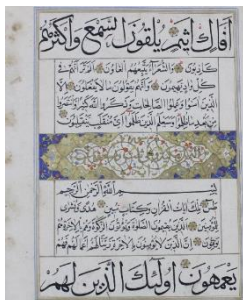 أفاك أثيم يلقون السمع وأكثرهم
كاذبون والشعراء يتبعهم الغاوون ألم تر أنهم في
كل واد يهيمون وأنهم يقولون ما لا يفعلون إلا
الذين آمنوا وعملوا الصالحات وذكروا الله كثيرا وانتصروا
من بعد ما ظلموا وسيعلم الذين ظلموا أي منقلب ينقلبون
بسم الله الرحمن الرحيم
طس تلك آيات القرآن وكتاب مبين هدى وبشرى
للمؤمنين الذين يقيمون الصلوة ويؤتون الزكوة وهم بالآخرة هم
يوقنون إن الذين لا يؤمنون بالآخرة زينا لهم أعمالهم فهم
يعمهون أولئك الذين لهم